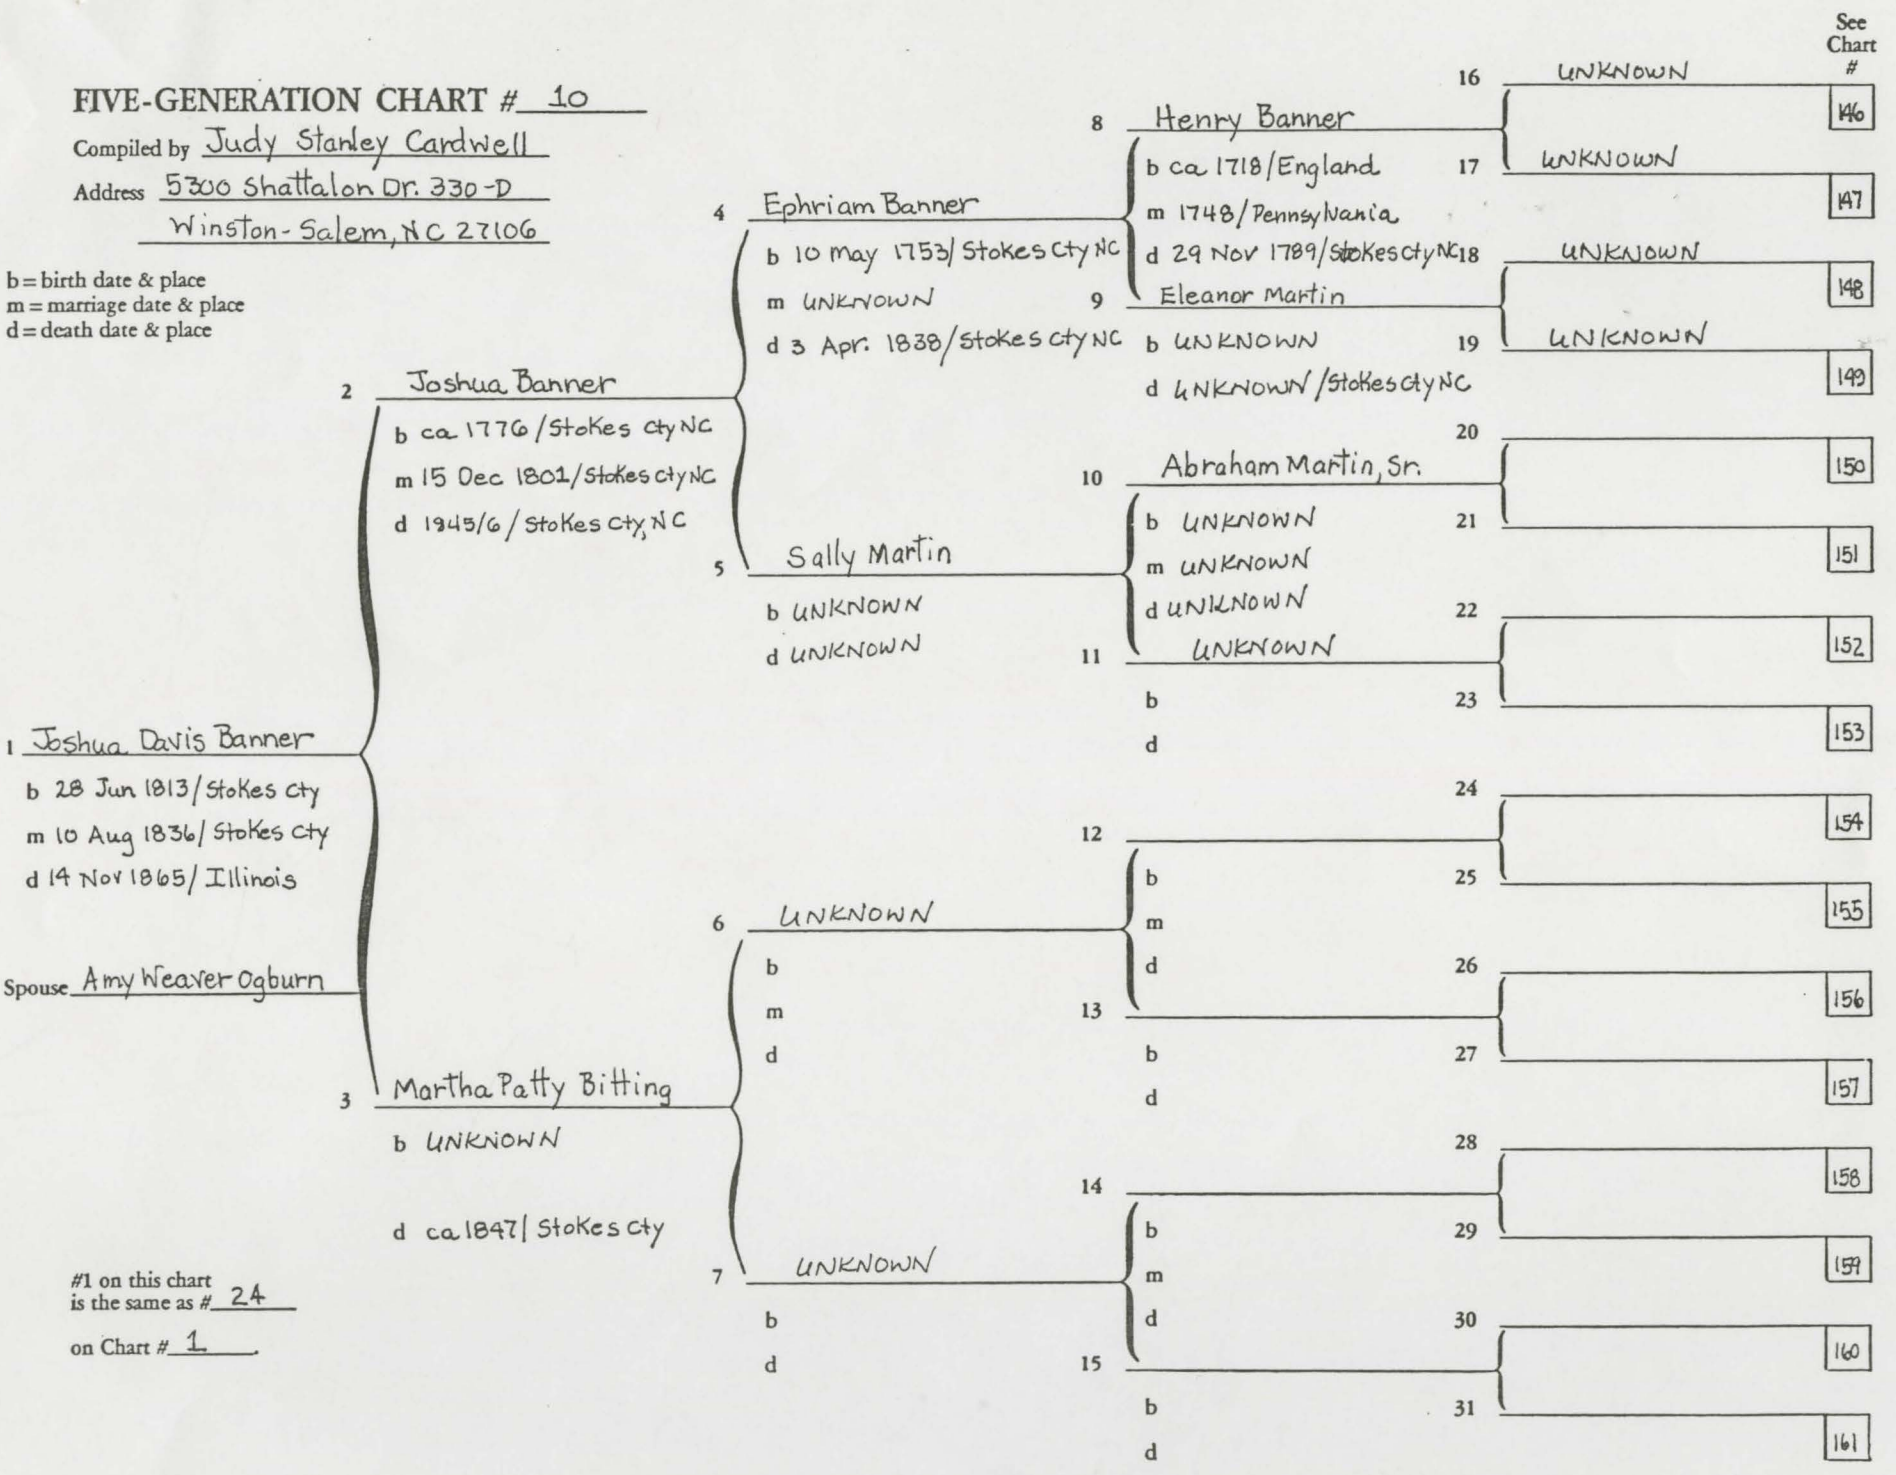 See
Chart
#
FIVE-GENERATION CHART # 10
Compiled by Judy Stanley Cardwell
Address 5300 Shattalon Dr. 330-D
Winston-Salem, NC 27106
b = birth date & place
m = marriage date & place
d = death date & place
1 Joshua Davis Banner
b 28 Jun 1813/Stokes Cty
m 10 Aug 1836/Stokes Cty
d 14 Nov 1865/Illinois
Spouse Amy Weaver Ogburn
#1 on this chart
is the same as # 24
on Chart # 1.
2 Joshua Banner
b ca 1776/Stokes Cty NC
m 15 Dec 1801/Stokes Cty NC
d 1845/6/Stokes Cty, NC
3 Martha Patty Bitting
b UNKNOWN
d ca 1847/Stokes Cty
4 Ephriam Banner
b 10 May 1753/Stokes Cty NC
m UNKNOWN
d 3 Apr. 1838/Stokes Cty NC
5 Sally Martin
b UNKNOWN
d UNKNOWN
6 UNKNOWN
b
m
d
7 UNKNOWN
b
d
8 Henry Banner
b ca 1718/England
m 1748/Pennsylvania
d 29 Nov 1789/Stokes Cty NC
9 Eleanor Martin
b UNKNOWN
d UNKNOWN/Stokes Cty NC
10 Abraham Martin, Sr.
b UNKNOWN
m UNKNOWN
d UNKNOWN
11 UNKNOWN
b
d
12
b
m
d
13
b
d
14
b
m
d
15
b
d
16 UNKNOWN 146
17 UNKNOWN 147
18 UNKNOWN 148
19 UNKNOWN 149
20 150
21 151
22 152
23 153
24 154
25 155
26 156
27 157
28 158
29 159
30 160
31 161